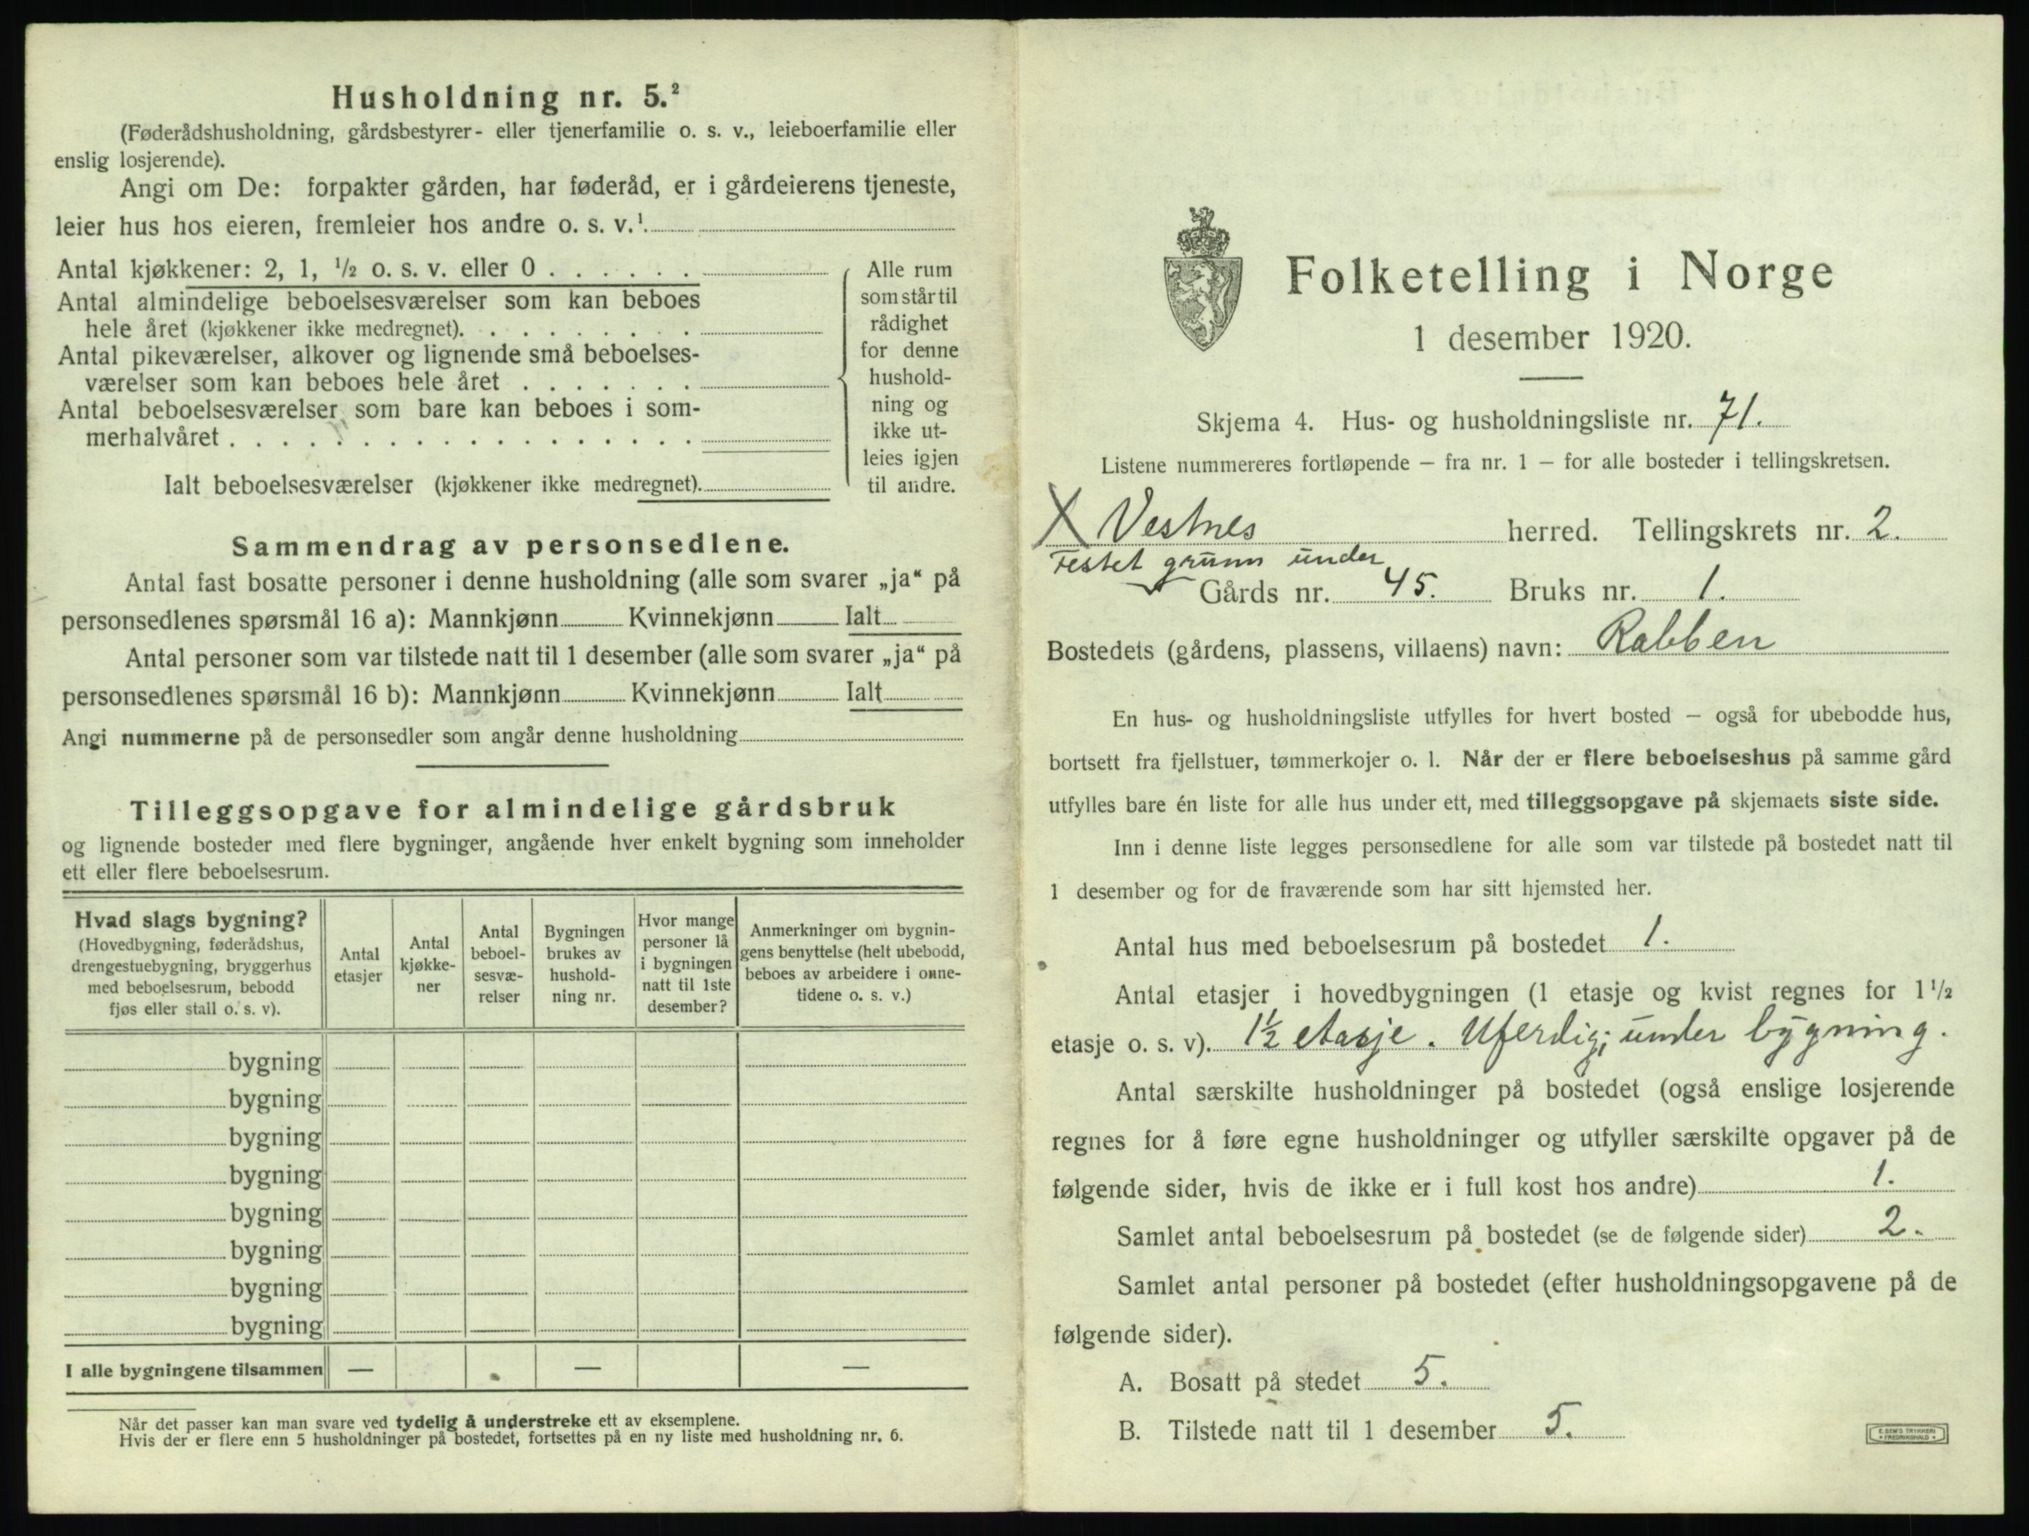 Husholdning nr. 5.²
(Føderådshusholdning, gårdsbestyrer- eller tjenerfamilie o. s. v., leieboerfamilie eller
enslig losjerende).
Angi om De: forpakter gården, har føderåd, er i gårdeierens tjeneste,
leier hus hos eieren, fremleier hos andre o. s. v.¹
Antal kjøkkener: 2, 1, ½ o. s. v. eller 0 . . . . . .
Antal almindelige beboelsesværelser som kan beboes
hele året (kjøkkener ikke medregnet). . . . . . . . .
Antal pikeværelser, alkover og lignende små beboelses-
værelser som kan beboes hele året . . . . . . .
Antal beboelsesværelser som bare kan beboes i som-
merhalvåret . . . . . . . . . . . . . . . . . .
Ialt beboelsesværelser (kjøkkener ikke medregnet).
Alle rum
som står til
rådighet
for denne
hushold-
ning og
ikke ut-
leies igjen
til andre.
Sammendrag av personsedlene.
Antal fast bosatte personer i denne husholdning (alle som svarer „ja“ på
personsedlenes spørsmål 16 a): Mannkjønn Kvinnekjønn Ialt
Antal personer som var tilstede natt til 1 desember (alle som svarer „ja“ på
personsedlenes spørsmål 16 b): Mannkjønn Kvinnekjønn Ialt
Angi nummerne på de personsedler som angår denne husholdning
Tilleggsopgave for almindelige gårdsbruk
og lignende bosteder med flere bygninger, angående hver enkelt bygning som inneholder
ett eller flere beboelsesrum.
Hvad slags bygning?
(Hovedbygning, føderådshus,
drengestuebygning, bryggerhus
med beboelsesrum, bebodd
fjøs eller stall o. s. v).
Antal
etasjer
Antal
kjøkke-
ner
Antal
beboel-
sesvæ-
relser
Bygningen
brukes av
hushold-
ning nr.
Hvor mange
personer lå
i bygningen
natt til 1ste
desember?
Anmerkninger om bygnin-
gens benyttelse (helt ubebodd,
beboes av arbeidere i onne-
tidene o. s. v.)
bygning
bygning
bygning
bygning
bygning
bygning
bygning
bygning
I alle bygningene tilsammen — — —
Når det passer kan man svare ved tydelig å understreke ett av eksemplene.
Hvis der er flere enn 5 husholdninger på bostedet, fortsettes på en ny liste med husholdning nr. 6.
Folketelling i Norge
1 desember 1920.
Skjema 4. Hus- og husholdningsliste nr. 71.
Listene nummereres fortløpende — fra nr. 1 — for alle bosteder i tellingskretsen.
X Vestnes herred. Tellingskrets nr. 2.
Festet grunn under
Gårds nr. 45. Bruks nr. 1.
Bostedets (gårdens, plassens, villaens) navn: Rabben
En hus- og husholdningsliste utfylles for hvert bosted — også for ubebodde hus,
bortsett fra fjellstuer, tømmerkojer o. l. Når der er flere beboelseshus på samme gård
utfylles bare én liste for alle hus under ett, med tilleggsopgave på skjemaets siste side.
Inn i denne liste legges personsedlene for alle som var tilstede på bostedet natt til
1 desember og for de fraværende som har sitt hjemsted her.
Antal hus med beboelsesrum på bostedet 1.
Antal etasjer i hovedbygningen (1 etasje og kvist regnes for 1 ½
etasje o. s. v). 1½ etasje. Uferdig; under bygning.
Antal særskilte husholdninger på bostedet (også enslige losjerende
regnes for å føre egne husholdninger og utfyller særskilte opgaver på de
følgende sider, hvis de ikke er i full kost hos andre) 1.
Samlet antal beboelsesrum på bostedet (se de følgende sider) 2.
Samlet antal personer på bostedet (efter husholdningsopgavene på de
følgende sider).
A. Bosatt på stedet 5.
B. Tilstede natt til 1 desember 5.
E. SEM'S TRYKKERI
• FREDRIKSHALD •